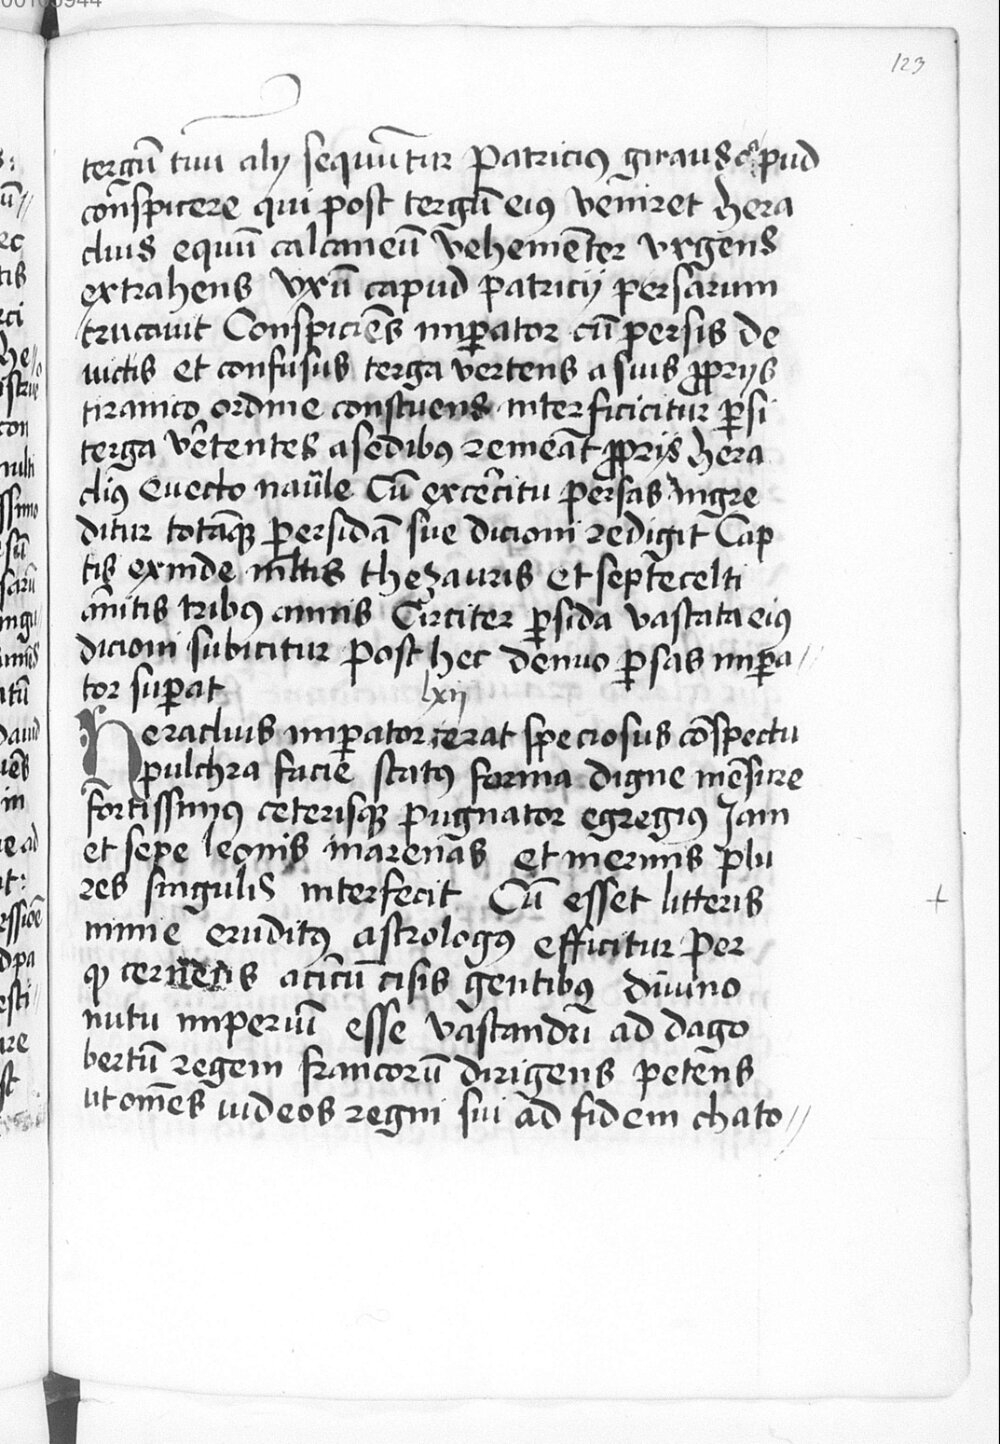 123
tergū tuū alij sequūtur Patricius giraus capud
conspicere qui post tergū eiꝰ veniret hera
clius equū calcaneū vehemēter vrgens
extrahens vxū capud patricij persarum
trucauit Conspiciēs imꝑator cū persis de
uictis et confusus terga vertens a suis ꝓprijs
tiranico ordine constuens interficicitur ꝑsi
terga v̄tentes a sedibꝰ remeāt ꝓprijs hera
cliꝰ euecto nauile Cū excercitu persas ingre
ditur totāqꝫ ꝑsidā sue dicioni redigit Cap
tis exinde ml̄tis thezauris et septecelti
ānitis tribꝰ annis Circiter ꝑsida vastata eiꝰ
dicioni subicitur post hec denuo ꝑsas imꝑa//
tor suꝑat
lxij
Heraclius imꝑator erat speciosus cōspectu
pulchra facie statꝰ forma digne mēsure
fortissimꝰ ceterisqꝫ pugnator egregiꝰ Jam
et sepe leonis in arenas et inermis plu
res singulis interfecit Cū esset litteris
nimie eruditꝰ astrologꝰ efficitur Per
cisis gentibꝰ diuino
nutu imperiū esse vastandū ad dago
bertū regem francorū dirigens petens
ut omēs iudeos regni sui ad fidem chato//